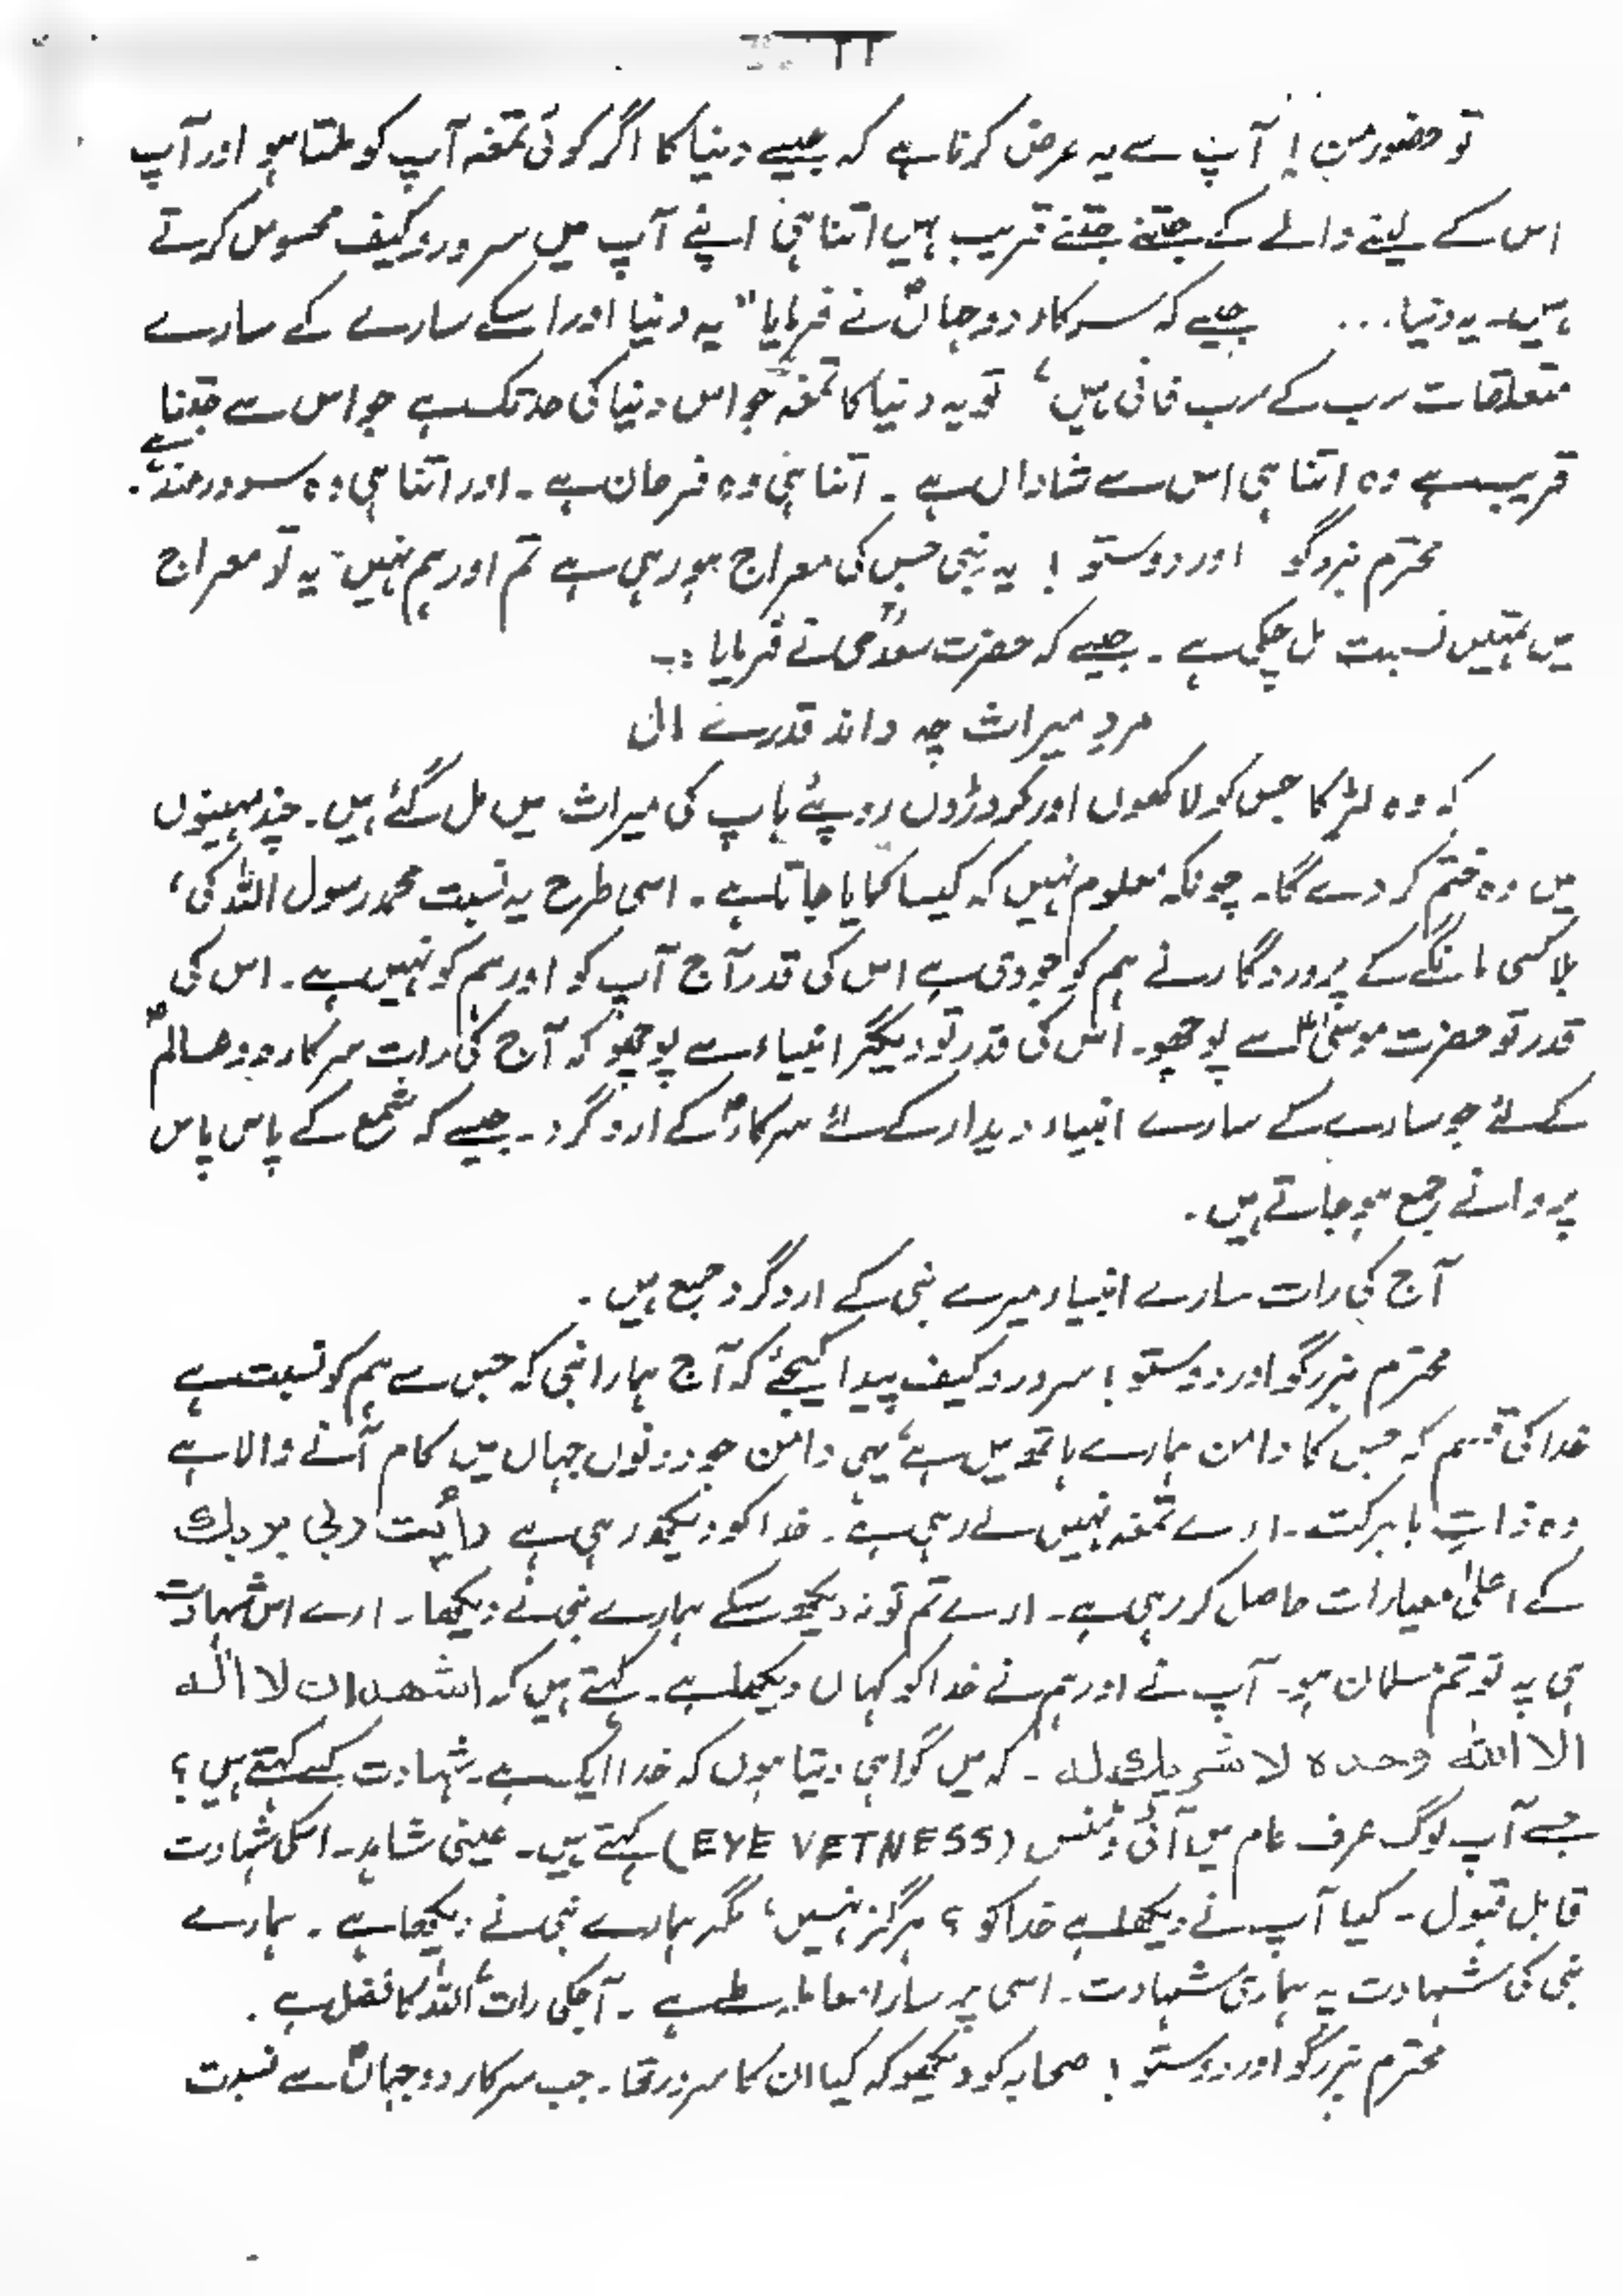 تو حضور من! آپ سے یہ عرض کرنا ہے کہ جیسے دنیا کا اگر کوئی تمغہ آپ کو ملتا ہو اور آپ
اس کے لینے والے کے جتنے جتنے قریب ہیں اتنا ہی اپنے آپ میں سرور و کیف محسوس کرتے
ہیں۔ یہ دنیا... جیسے کہ سرکار دوجہاںؐ نے فرمایا "یہ دنیا اور اسکے سارے کے سارے
متعلقات سب کے سب فانی ہیں، تو یہ دنیا کا تمغہ جو اس دنیا کی حد تک ہے جو اس سے جتنا
قریب ہے وہ اتنا ہی اس سے شاداں ہے۔ اتنا ہی وہ فرحان ہے۔ اور اتنا ہی وہ سرور مند ہے۔
محترم بزرگو اور دوستو! یہ نبی جس کی معراج ہو رہی ہے تم اور ہم نہیں یہ تو معراج
میں تمہیں نسبت مل چکی ہے۔ جیسے کہ حضرت سعدیؒ نے فرمایا :۔
مردِ میراث چہ داند قدرے مال
کہ وہ لڑکا جس کو لاکھوں اور کروڑوں روپئے باپ کی میراث میں مل گئے ہیں۔ چند مہینوں
میں وہ ختم کر دے گا۔ چونکہ معلوم نہیں کہ کیسا کمایا جاتا ہے۔ اسی طرح یہ نسبت محمد رسول اللہ کی،
بلا کسی مانگے کے پروردگار نے ہم کو جو دی ہے اس کی قدر آج آپ کو اور ہم کو نہیں ہے۔ اس کی
قدر تو حضرت موسیٰؑ سے پوچھو۔ اس کی قدر تو دیگر انبیاء سے پوچھو کہ آج کی رات سرکار دوعالمؐ
کے لئے جو سارے کے سارے انبیاء دیدار کے لئے سرکارؐ کے اردگرد۔ جیسے کہ شمع کے پاس پاس
پروانے جمع ہو جاتے ہیں۔
آج کی رات سارے انبیاء میرے نبی کے اردگرد جمع ہیں۔
محترم بزرگو اور دوستو! سرور و کیف پیدا کیجئے کہ آج ہمارا نبی کہ جس سے ہم کو نسبت ہے
خدا کی قسم کہ جس کا دامن ہمارے ہاتھ میں ہے، یہی دامن جو دونوں جہاں میں کام آنے والا ہے
وہ ذاتِ بابرکت۔ ارے تمغہ نہیں لے رہی ہے۔ خدا کو دیکھ رہی ہے رأیت ربی بربک
کے اعلیٰ معیارات حاصل کر رہی ہے۔ ارے تم تو نہ دیکھ سکے ہمارے نبی نے دیکھا۔ ارے اس شہادت
ہی پہ تو تم مسلمان ہو۔ آپ نے اور ہم نے خدا کو کہاں دیکھا ہے۔ کہتے ہیں کہ اشھد ان لا الٰہ
الا اللہ وحدہ لا شریک لہ۔ کہ میں گواہی دیتا ہوں کہ خدا ایک ہے۔ شہادت کسے کہتے ہیں؟
جسے آپ لوگ عرف عام میں آئی وٹنس (EYE VETNESS) کہتے ہیں۔ عینی شاہد۔ اسکی شہادت
قابل قبول۔ کیا آپ نے دیکھا ہے خدا کو؟ ہرگز نہیں، مگر ہمارے نبی نے دیکھا ہے۔ ہمارے
نبی کی شہادت پہ ہماری شہادت۔ اسی پر سارا معاملہ طے ہے۔ آجکی رات اللہ کا فضل ہے۔
محترم بزرگو اور دوستو! صحابہ کو دیکھو کہ کیا ان کا سرور تھا۔ جب سرکار دوجہاںؐ سے نسبت